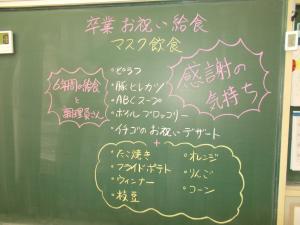 卒業お祝い給食
マスク飲食
6年間の給食
と
調理員さん
・ピラフ
・豚ヒレカツ
・ABCスープ
・ボイルブロッコリー
・イチゴのお祝いデザート
感謝の
気持ち
+
・たこ焼き
・フライドポテト
・ウィンナー
・枝豆
・オレンジ
・りんご
・コーン